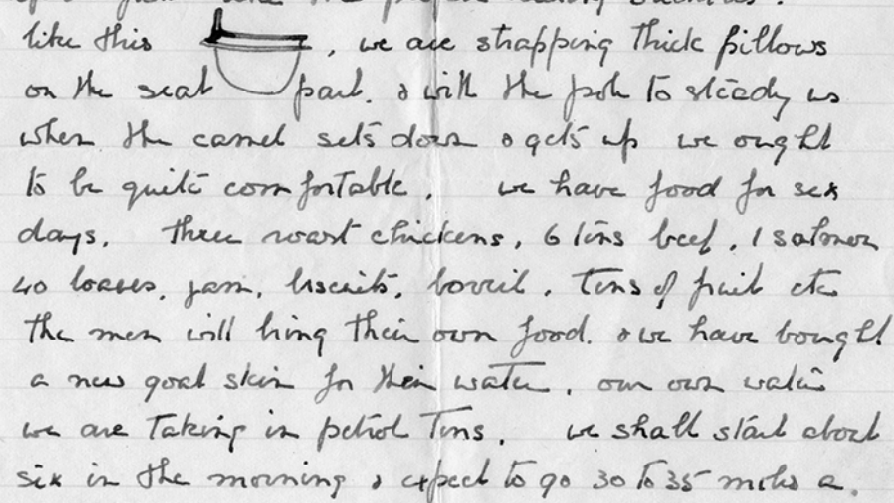 like this , we are strapping thick pillows
on the seat part. & with the pole to steady us
when the camel sets down & gets up we ought
to be quite comfortable. we have food for six
days. three roast chickens, 6 tins beef, 1 salmon
40 loaves, jam, biscuits, bovril, tins of fruit etc
the men will bring their own food. & we have bought
a new goat skin for their water, our own water
we are taking in petrol tins. we shall start about
six in the morning & expect to go 30 to 35 miles a